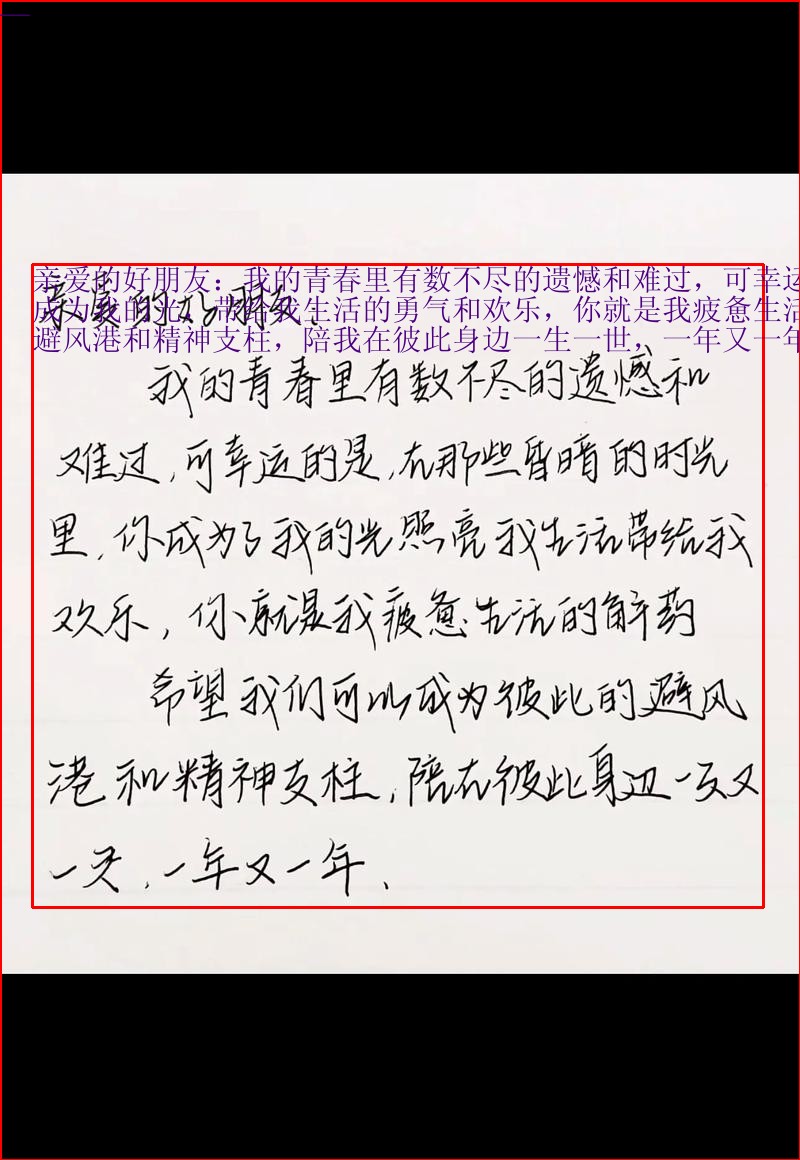 亲爱的好朋友：我的青春里有数不尽的遗憾和难过，可幸运
成为我的光，带给我生活的勇气和欢乐，你就是我疲惫生活
避风港和精神支柱，陪我在彼此身边一生一世，一年又一年
亲爱的好朋友：
我的青春里有数不尽的遗憾和
难过，可幸运的是，在那些昏暗的时光
里，你成为了我的光照亮我生活带给我
欢乐，你就是我疲惫生活的解药
希望我们可以成为彼此的避风
港和精神支柱，陪在彼此身边一天又
一天，一年又一年、